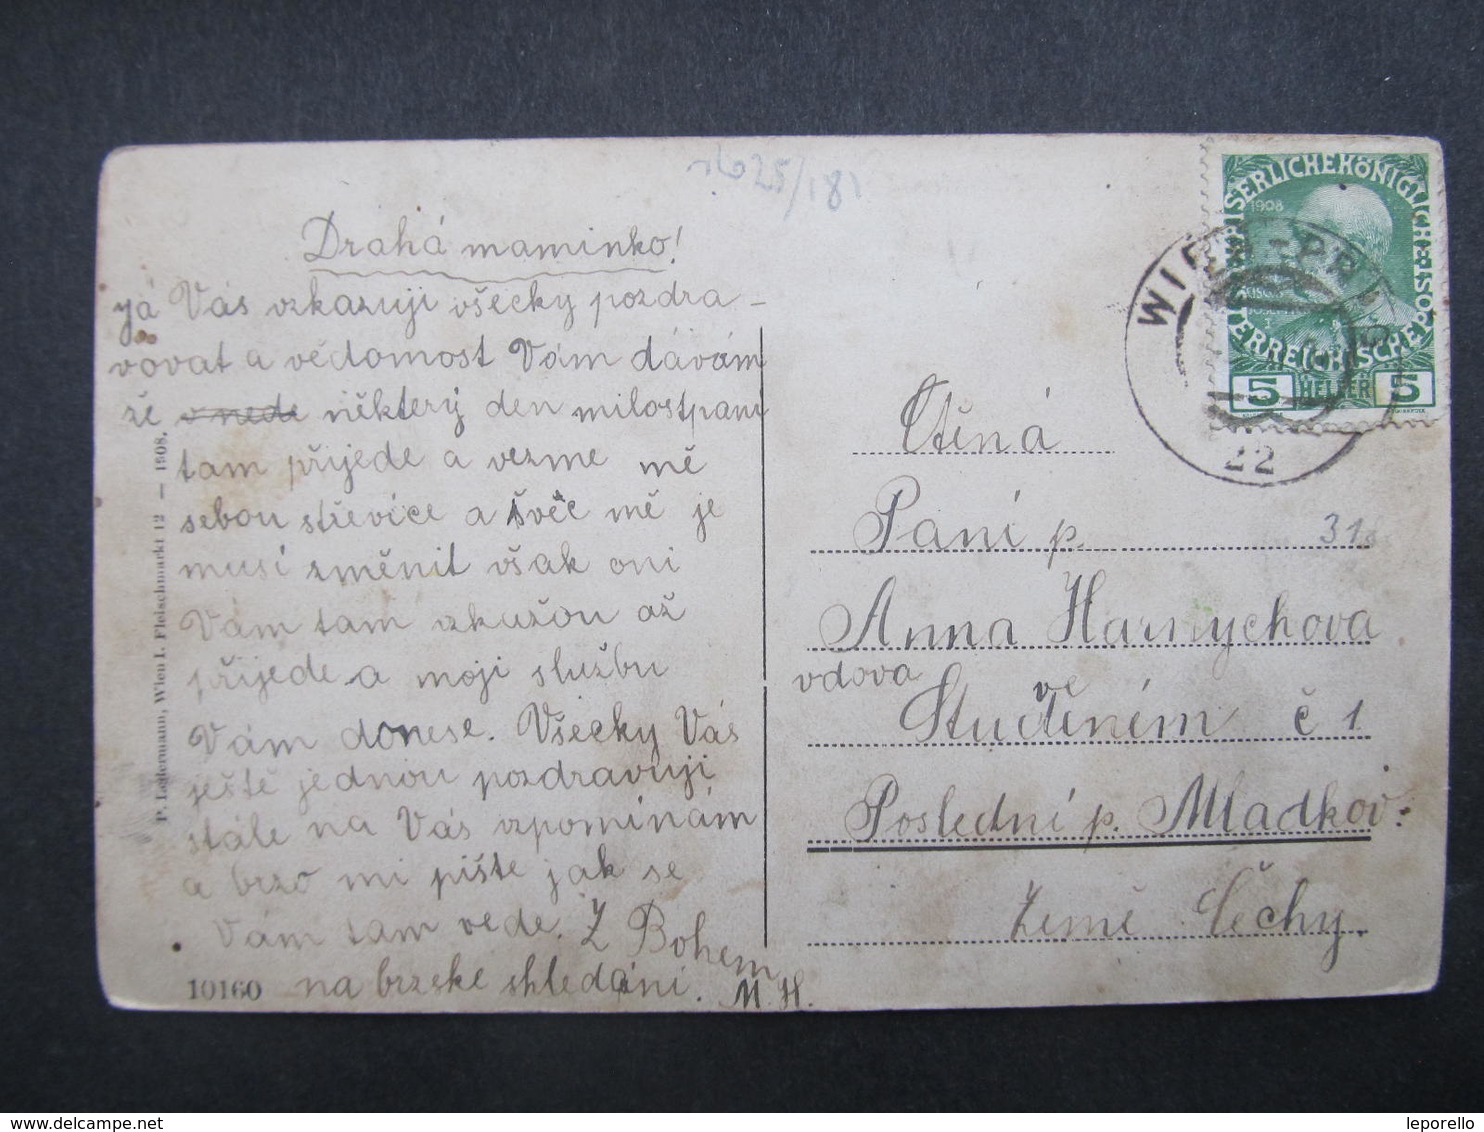 Drahá maminko!
Já Vás vzkazuji všecky pozdra-
vovat a vědomost Vám dávám
že v nede některý den milostpaní
tam přijede a vezme mě
sebou střevice a švěc mě je
musí změnit však oni
Vám tam vzkážou až
přijede a moji službu
Vám donese. Všecky Vás
ještě jednou pozdravuji
stále na Vás vzpomínám
a brzo mi pište jak se
Vám tam vede. Z Bohem
na brzské shledání. M. H.
10160
P. Ledermann, Wien I. Fleischmarkt 12 — 1908.
25/181
KAISERLICHE KÖNIGLICHE
ÖSTERREICHISCHE POST
1908
5 HELLER 5
WIEN
22
Ctěná
Paní p.
31
Anna Harnychova
vdova
ve
Studeném č 1
Poslední p. Mladkov.
Země Čechy.
leporello